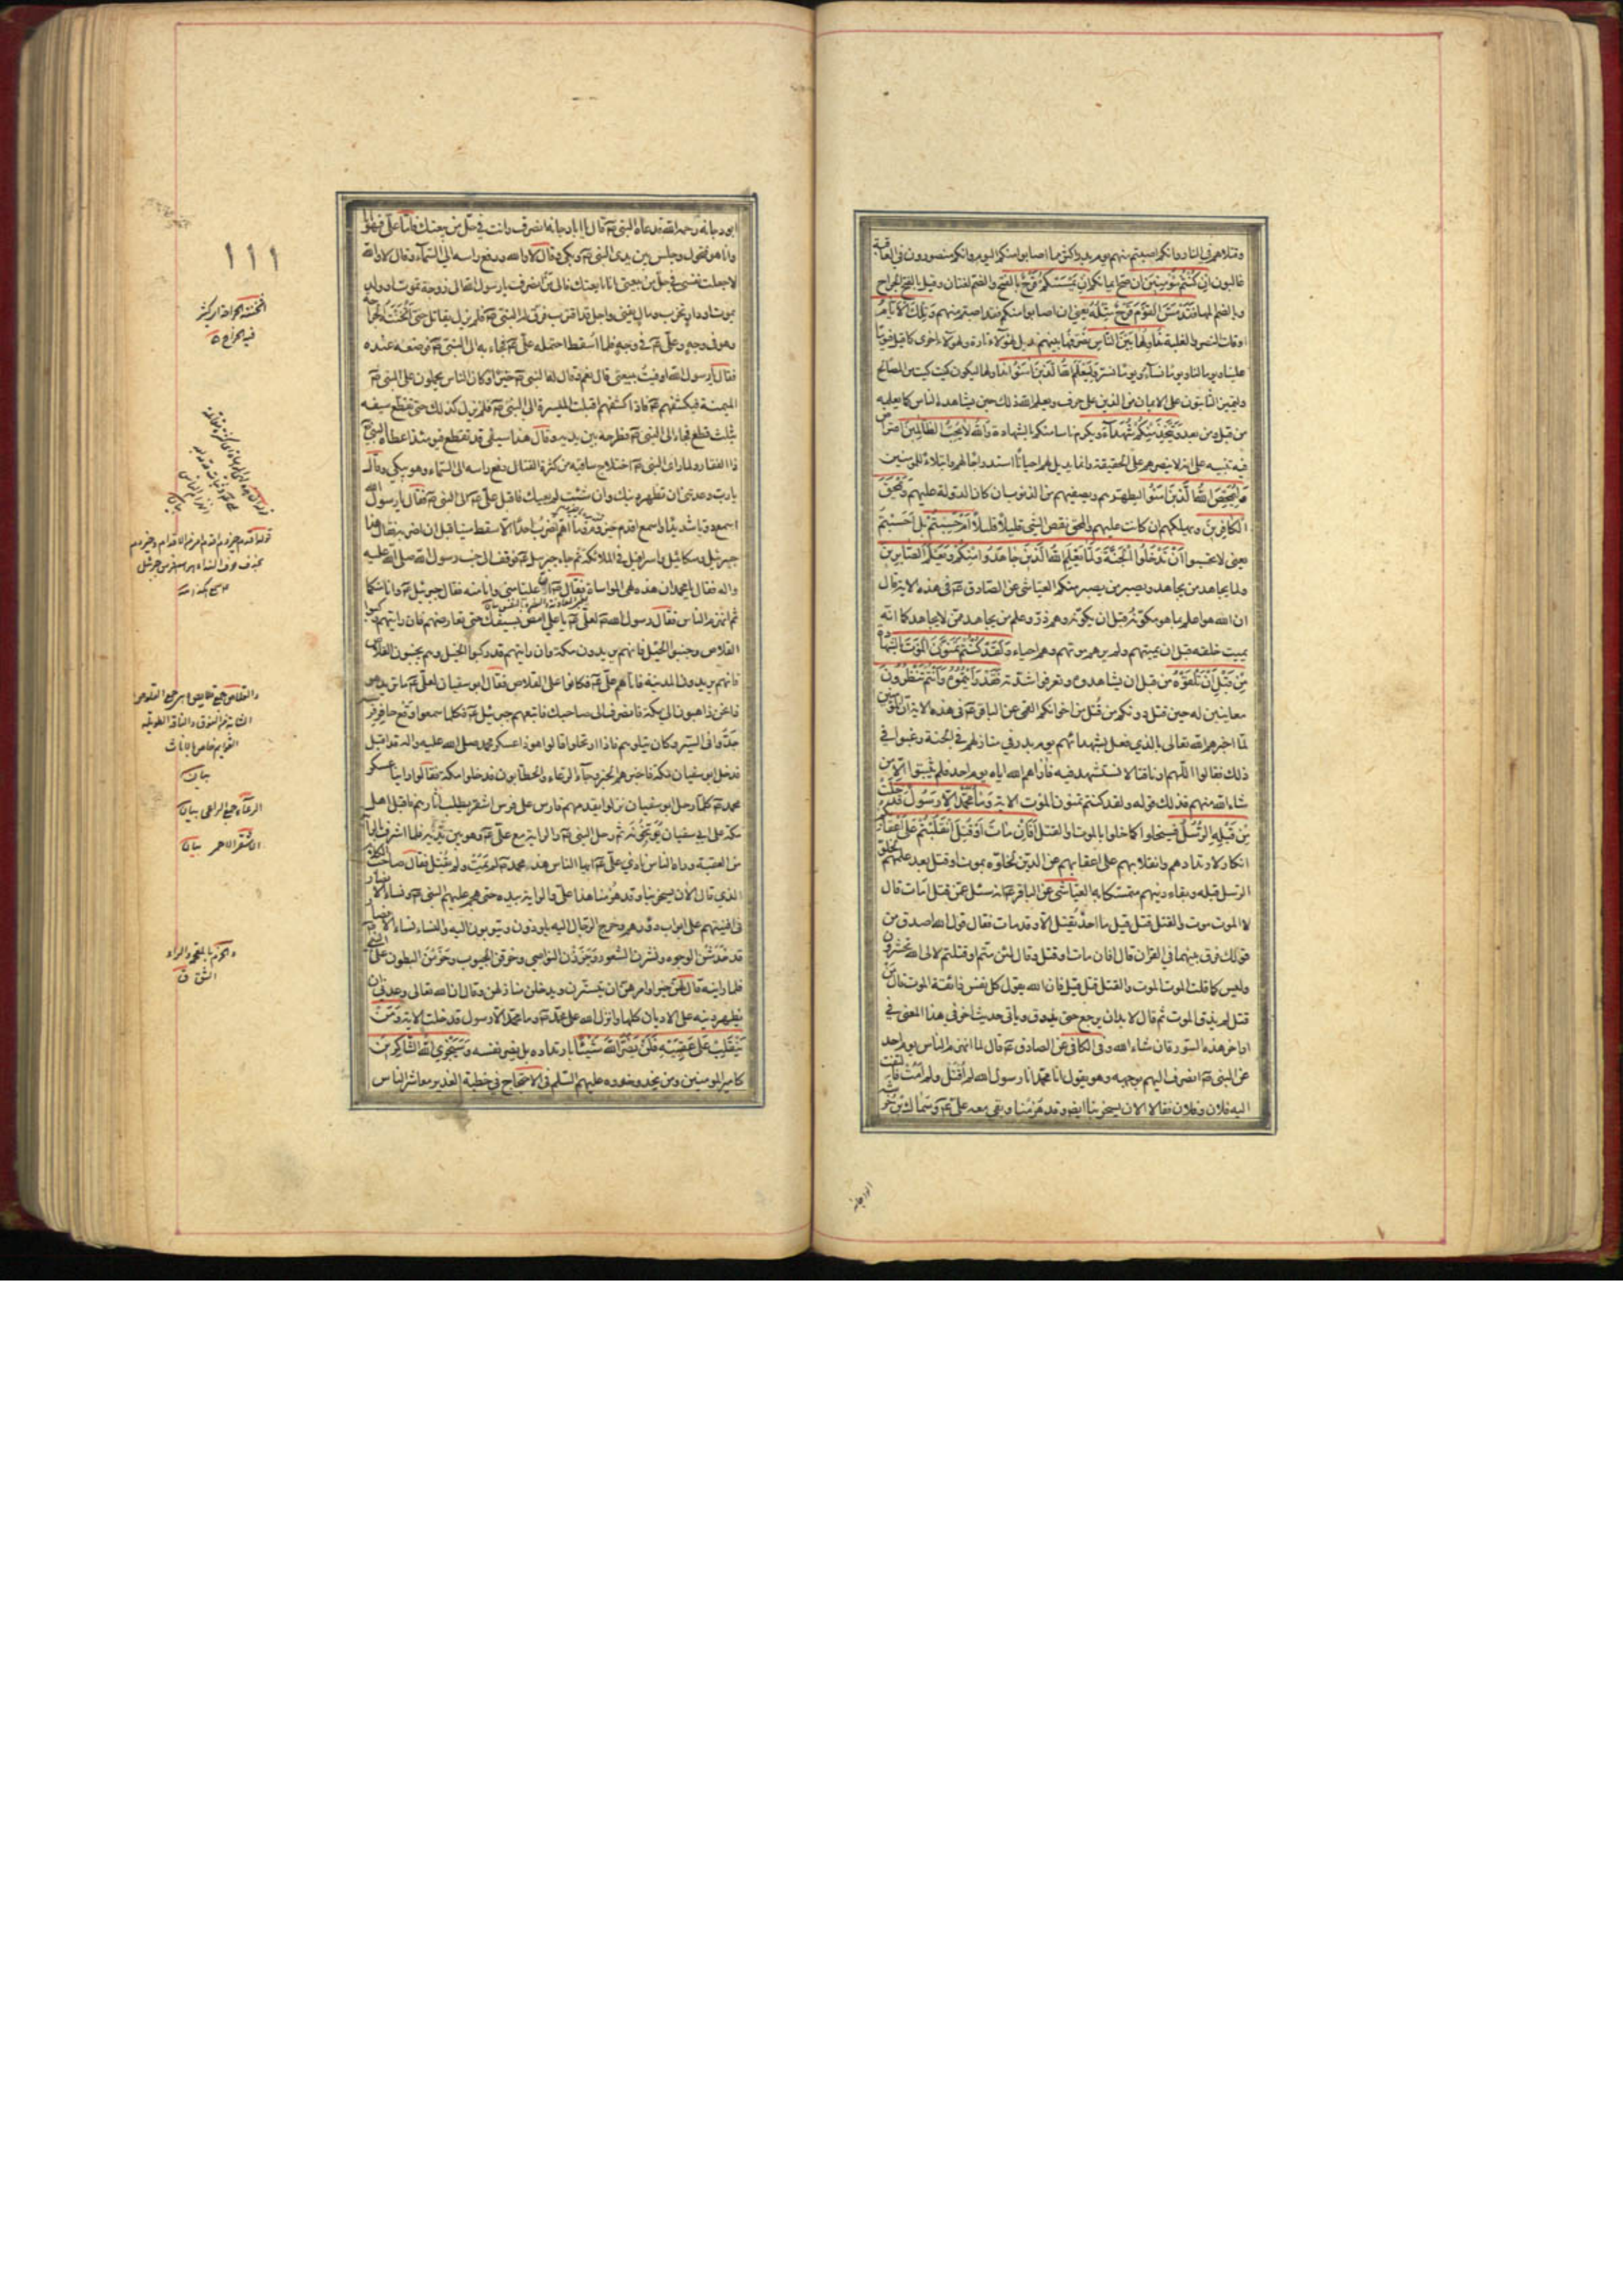 وقتلاهم في النار وانكم اصبتم منهم يوم بدر اكثر مما اصابوا منكم اليوم وانكم منصورون في العاقبة
غالبون ان كُنْتُمْ مُؤْمِنِينَ ان صح ايمانكم اِنْ يَمْسَسْكُمْ قَرْحٌ بالفتح والضم لغتان وقيل بالفتح الجراح
وبالضم المها فَقَدْ مَسَّ الْقَوْمَ قَرْحٌ مِثْلُهُ يعني ان اصابوا منكم فقد اصبتم منهم وَتِلْكَ الْاَيّامُ
اوقات النصر والغلبة نُداوِلُها بَيْنَ النّاسِ نصرفها بينهم نديل لهؤلاء تارة ولهؤلاء اخرى كما قيل فيوما
علينا ويوما لنا ويوما نساء ويوما نسر وَلِيَعْلَمَ اللهُ الَّذينَ آمَنُوا نداولها ليكون كيت وكيت من المصالح
وليتميز الثابتون على الايمان من الذين على حرف ويعلم الله ذلك حين يشاهده الناس كما يعلمه
من قبل ومن بعد وَيَتَّخِذَ مِنْكُمْ شُهَداءَ ويكرم ناسا منكم بالشهادة وَاللهُ لا يُحِبُّ الظّالِمينَ اعتراض
فيه تنبيه على انه لا ينصرهم على الحقيقة وانما يديل لهم احيانا استدراجا لهم وابتلاء للمؤمنين
وَلِيُمَحِّصَ اللهُ الَّذينَ آمَنُوا ليطهرهم ويصفيهم من الذنوب ان كان الدولة عليهم وَيَمْحَقَ
الْكافِرينَ ويهلكهم ان كانت عليهم والمحق نقص الشيء قليلا قليلا اَمْ حَسِبْتُمْ بل احسبتم
يعني لا تحسبوا اَنْ تَدْخُلُوا الْجَنَّةَ وَلَمّا يَعْلَمِ اللهُ الَّذينَ جاهَدُوا مِنْكُمْ وَيَعْلَمَ الصّابِرينَ
ولما يجاهد من يجاهد ويصبر من يصبر منكم العياشي عن الصادق ع في هذه الاية قال
ان الله هو اعلم بما هو مكونه قبل ان يكونه وهم ذر وعلم من يجاهد ممن لا يجاهد كما انه
يميت خلقه قبل ان يميتهم ولم يرهم موتهم وهم احياء وَلَقَدْ كُنْتُمْ تَمَنَّوْنَ الْمَوْتَ بالشهادة
مِنْ قَبْلِ اَنْ تَلْقَوْهُ من قبل ان يشاهدوه وتعرفوا شدته فَقَدْ رَاَيْتُمُوهُ وَاَنْتُمْ تَنْظُرُونَ
معاينين له حين قتل دونكم من قتل من اخوانكم القمي عن الباقر ع في هذه الاية ان المؤمنين
لما اخبرهم الله تعالى بالذي فعل بشهدائهم يوم بدر في منازلهم في الجنة رغبوا في
ذلك فقالوا اللهم ارنا قتالا نستشهد فيه فأراهم الله اياه يوم احد فلم يثبتوا الا من
شاء الله منهم فذلك قوله ولقد كنتم تمنون الموت الاية وَما مُحَمَّدٌ اِلّا رَسُولٌ قَدْ خَلَتْ
مِنْ قَبْلِهِ الرُّسُلُ فسيخلوا كما خلوا بالموت او القتل اَفَاِنْ ماتَ اَوْ قُتِلَ انْقَلَبْتُمْ عَلى اَعْقابِكُمْ
انكار لارتدادهم وانقلابهم على اعقابهم عن الدين لخلوه بموت او قتل بعد علمهم بخلو
الرسل قبله وبقاء دينهم متمسكا به العياشي عن الباقر ع انه سئل عمن قتل امات قال
لا الموت موت والقتل قتل قيل ما احد يقتل الا وقد مات فقال قول الله اصدق من
قولك فرق بينهما في القران قال افان مات او قتل وقال لئن متم او قتلتم لالى الله تحشرون
وليس كما قلت الموت الموت والقتل قتل قيل فان الله يقول كل نفس ذائقة الموت فقال من
قتل لم يذق الموت ثم قال لا بد ان يرجع حتى يذوق وياتي حديث اخر في هذا المعنى في
اواخر هذه السورة ان شاء الله وفي الكافي عن الصادق ع قال لما انهزم الناس يوم احد
عن النبي ص انصرف اليهم بوجهه وهو يقول انا محمد انا رسول الله لم اقتل ولم امت فالتفت
اليه فلان وفلان فقالا الان يسخر بنا ايضا وقد هزمنا وبقي معه علي ع وسماك بن خرشة
ابو دجانة
ابو دجانة رحمه الله فدعاه النبي ص فقال يا ابا دجانة انصرف وانت في حل من بيعتك فاما علي فهو انا
وانا هو فتحول وجلس بين يدي النبي ص وبكى وقال لا والله ورفع راسه الى السماء وقال لا والله
لا جعلت نفسي في حل من بيعتي انا بايعتك فالى من انصرف يا رسول الله الى زوجة تموت او ولد
يموت او دار تخرب ومال يفنى واجل قد اقترب فرق له النبي ص فلم يزل يقاتل حتى اثخنته الجراحة
وهو في وجه وعلي ع في وجه فلما اسقط احتمله علي ع فجاء به الى النبي ص فوضعه عنده
فقال يا رسول الله اوفيت ببيعتي قال نعم وقال له النبي ص خيرا وكان الناس يحملون على النبي ص
الميمنة فيكشفهم ع فاذا كشفهم اقبلت الميسرة الى النبي ص فلم يزل كذلك حتى تقطع سيفه
بثلث قطع فجاء الى النبي ص فطرحه بين يديه وقال هذا سيفي قد تقطع فيومئذ اعطاه النبي ص
ذا الفقار ولما راى النبي ص اختلاج ساقيه من كثرة القتال رفع راسه الى السماء وهو يبكي وقال
يا رب وعدتني ان تظهر دينك وان شئت لم يعيك فاقبل علي ع الى النبي ص فقال يا رسول الله
اسمع دويا شديدا واسمع اقدم حيزوم وما اهم اضرب احدا الا سقط ميتا قبل ان اضربه فقال هذا
جبرئيل وميكائيل واسرافيل في الملائكة ثم جاء جبرئيل ع فوقف الى جنب رسول الله صلى الله عليه
واله فقال يا محمد ان هذه لهي المواساة فقال ص ان عليا مني وانا منه فقال جبرئيل ع وانا منكما
ثم انهزم الناس فقال رسول الله ص لعلي ع يا علي امض بسيفك حتى تعارضهم فان رايتهم ركبوا
القلاص وجنبوا الخيل فانهم يريدون مكة وان رايتهم قد ركبوا الخيل وهم يجنبون القلاص
فانهم يريدون المدينة فاتاهم علي ع فكانوا على القلاص فقال ابو سفيان لعلي ع ما تريد هو
ذا نحن ذاهبون الى مكة فانصرف الى صاحبك فاتبعهم جبرئيل ع فكلما سمعوا وقع حافر فرسه
جدوا في السير وكان يتلوهم فاذا ارتحلوا قالوا هوذا عسكر محمد صلى الله عليه واله قد اقبل
فدخل ابو سفيان مكة فاخبرهم الخبر وجاء الرعاء والحطابون فدخلوا مكة فقالوا راينا عسكر
محمد ص كلما رحل ابو سفيان نزلوا يقدمهم فارس على فرس اشقر يطلب اثارهم فاقبل اهل
مكة على ابي سفيان يوبخونه ثم رحل النبي ص والراية مع علي ع وهو بين يديه فلما اشرف بالراية
من العقبة وراه الناس نادى علي ع ايها الناس هذا محمد ص لم يمت ولم يقتل فقال صاحب الكلام
الذي قال الان يسخر بنا وقد هزمنا هذا علي والراية بيده حتى هجم عليهم النبي ص ونساء الانصار
في افنيتهم على ابواب دورهم وخرج الرجال اليه يلوذون ويتوبون اليه والنساء نساء الانصار
قد خدشن الوجوه ونشرن الشعور وجززن النواصي وخرقن الجيوب وخرمن البطون على النبي ص
فلما راينه قال لهن خيرا وامرهن ان يتسترن ويدخلن منازلهن وقال ان الله تعالى وعدني ان
يظهر دينه على الاديان كلها وانزل الله على محمد ص وما محمد الا رسول قد خلت الاية وَمَنْ
يَنْقَلِبْ عَلى عَقِبَيْهِ فَلَنْ يَضُرَّ اللهَ شَيْئًا بارتداده بل يضر نفسه وَسَيَجْزِي اللهُ الشّاكِرينَ
كامير المومنين ومن يحذو حذوه عليهم السلم في الاحتجاج في خطبة الغدير معاشر الناس
١١١
اثخنته الجراحة اي كثر
فيه الجراح
والقلاص جمع قلايص
الشابة من النوق والناقة الطويلة
القوايم خاص بالاناث
بيان
الرعاء جمع الراعي بيان
الاشقر الاحمر بيان
والخرم بالمعجمة والراء
الشق ق